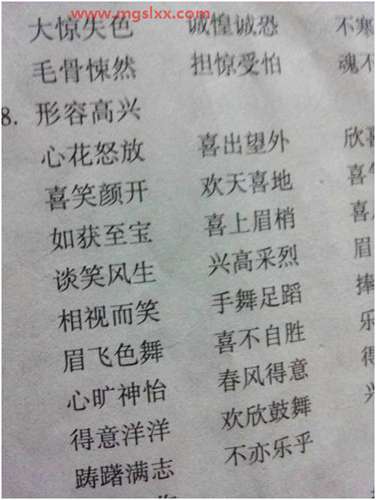 www.mgslxx.com
大惊失色 诚惶诚恐 不寒
毛骨悚然 担惊受怕 魂不
8. 形容高兴
心花怒放 喜出望外 欣喜
喜笑颜开 欢天喜地 喜
如获至宝 喜上眉梢 喜
谈笑风生 兴高采烈 眉
相视而笑 手舞足蹈 捧
眉飞色舞 喜不自胜 乐
心旷神怡 春风得意 得
得意洋洋 欢欣鼓舞
踌躇满志 不亦乐乎